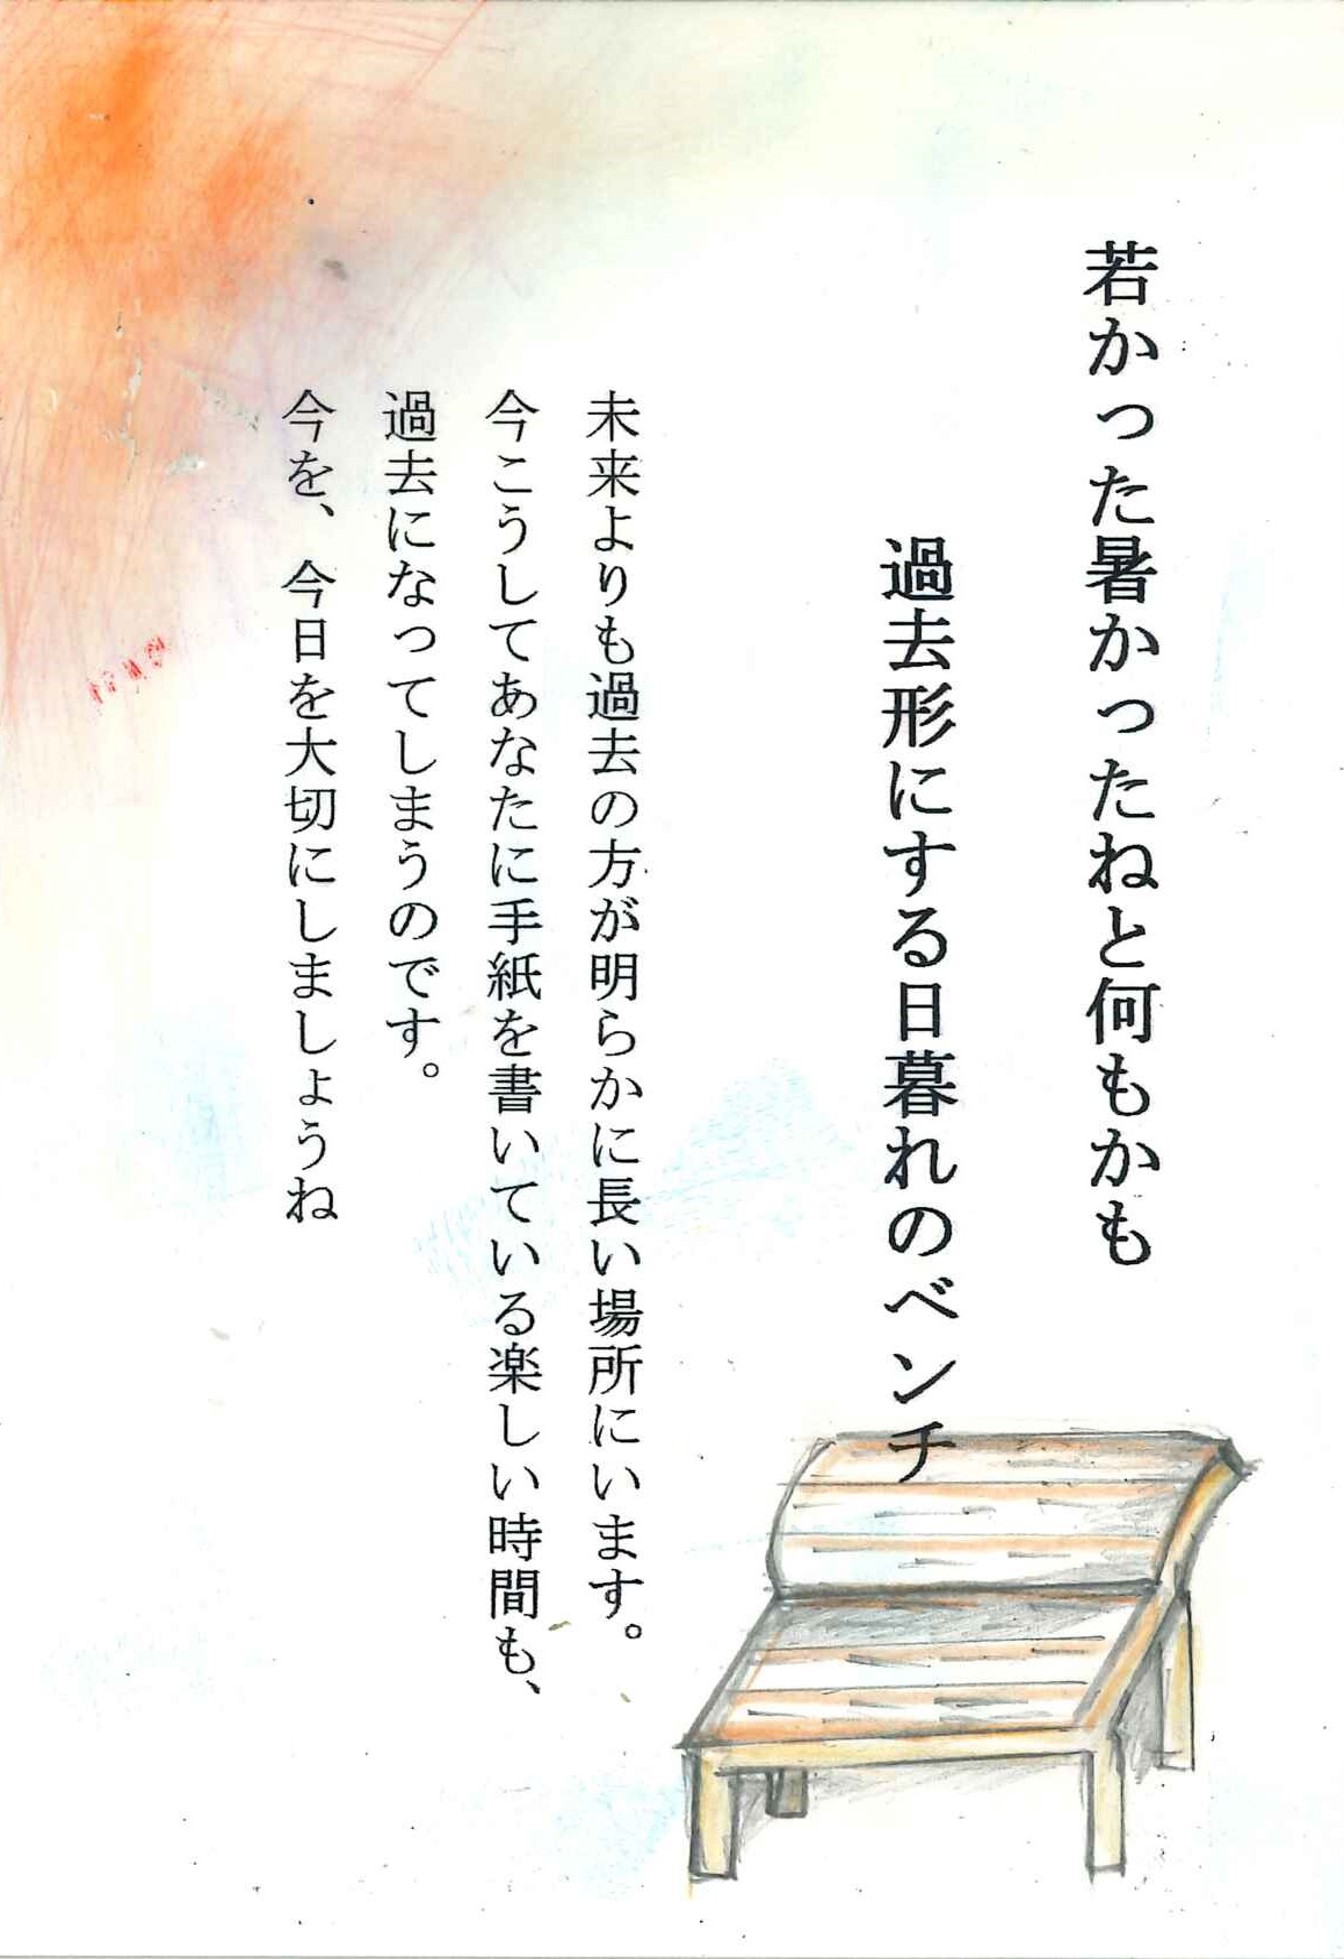 若かった暑かったねと何もかも
過去形にする日暮れのベンチ
未来よりも過去の方が明らかに長い場所にいます。
今こうしてあなたに手紙を書いている楽しい時間も、
過去になってしまうのです。
今を、今日を大切にしましょうね